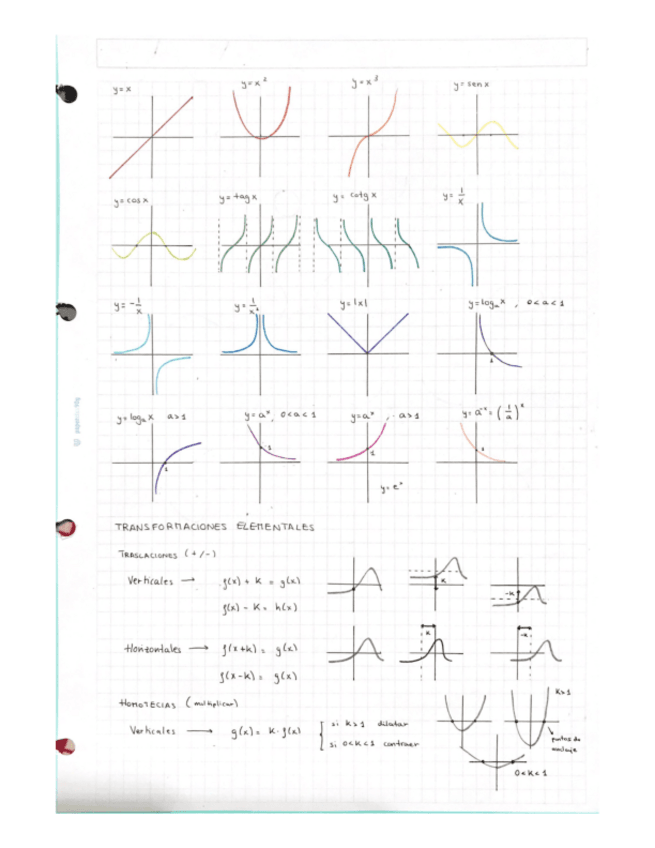 y=x
y=x²
y=x³
y=sen x
y=cos x
y=tag x
y=cotg x
y=1/x
y=-1/x
y=1/x²
y=|x|
y=logₐx , 0<a<1
1
y=logₐx a>1
y=aˣ, 0<a<1
y=aˣ, a>1
y=a⁻ˣ=(1/a)ˣ
1
1
1
1
y=eˣ
TRANSFORMACIONES ELEMENTALES
TRASLACIONES (+/-)
Verticales → f(x) + K = g(x)
K
-K
f(x) - K = h(x)
Horizontales → f(x+k) = g(x)
K
-K
f(x-k) = g(x)
HOMOTECIAS (multiplicar)
K>1
Verticales → g(x) = K·f(x)
si K>1 dilatar
si 0<K<1 contraer
puntos de anclaje
0<K<1